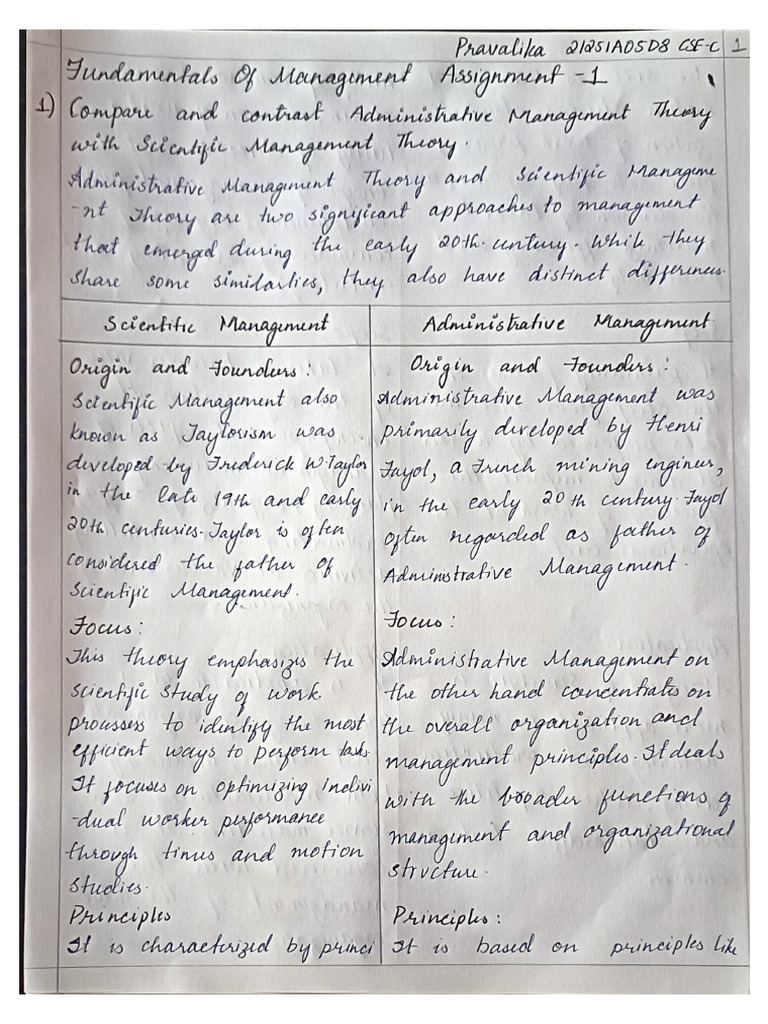 Pravalika 21251A05D8 CSE-C 1
Fundamentals Of Management Assignment -1
1) Compare and contrast Administrative Management Theory
with Scientific Management Theory.
Administrative Management Theory and Scientific Manageme
-nt Theory are two significant approaches to management
that emerged during the early 20th century. While they
share some similarties, they also have distinct differences.
Scientific Management
Origin and Founders:
Scientific Management also
known as Taylorism was
developed by Frederick W.Taylor
in the late 19th and early
20th centuries. Taylor is often
considered the father of
Scientific Management.
Focus:
This theory emphasizes the
scientific study of work
processes to identify the most
efficient ways to perform tasks.
It focuses on optimizing indivi
-dual worker performance
through times and motion
studies.
Principles
It is characterized by princi
Administrative Management
Origin and Founders:
Administrative Management was
primarily developed by Henri
Fayol, a French mining engineer,
in the early 20th century. Fayol
often regarded as father of
Administrative Management.
Focus:
Administrative Management on
the other hand concentrates on
the overall organization and
management principles. It deals
with the broader functions of
management and organizational
structure.
Principles:
It is based on principles like